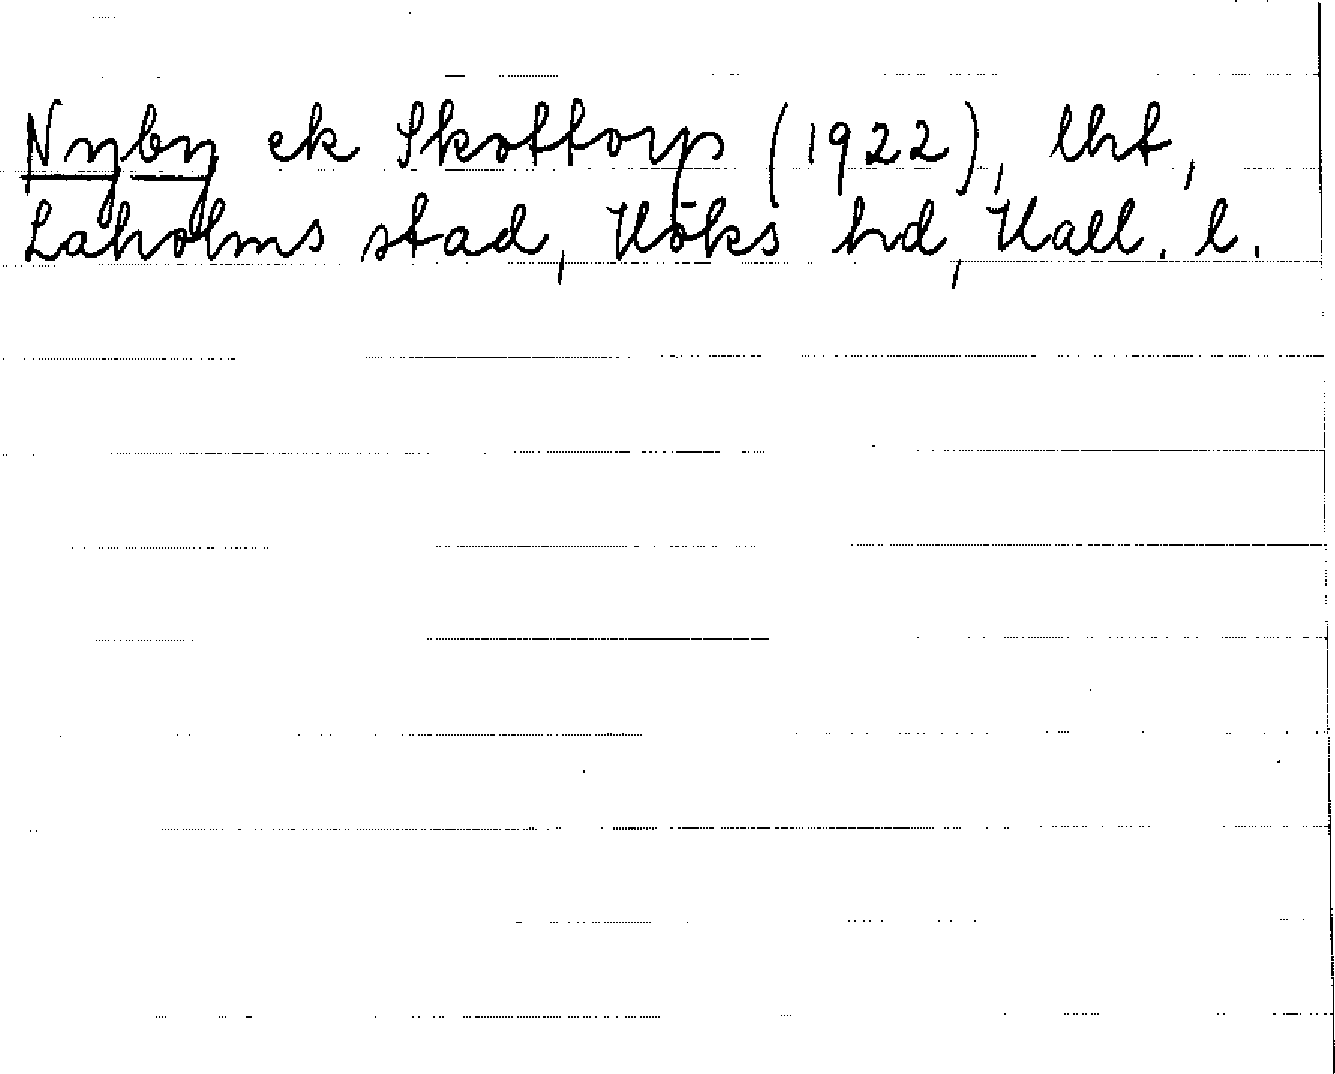 Nyby ek Skottorp (1922), lht,
Laholms stad, Höks hd, Hall. l.